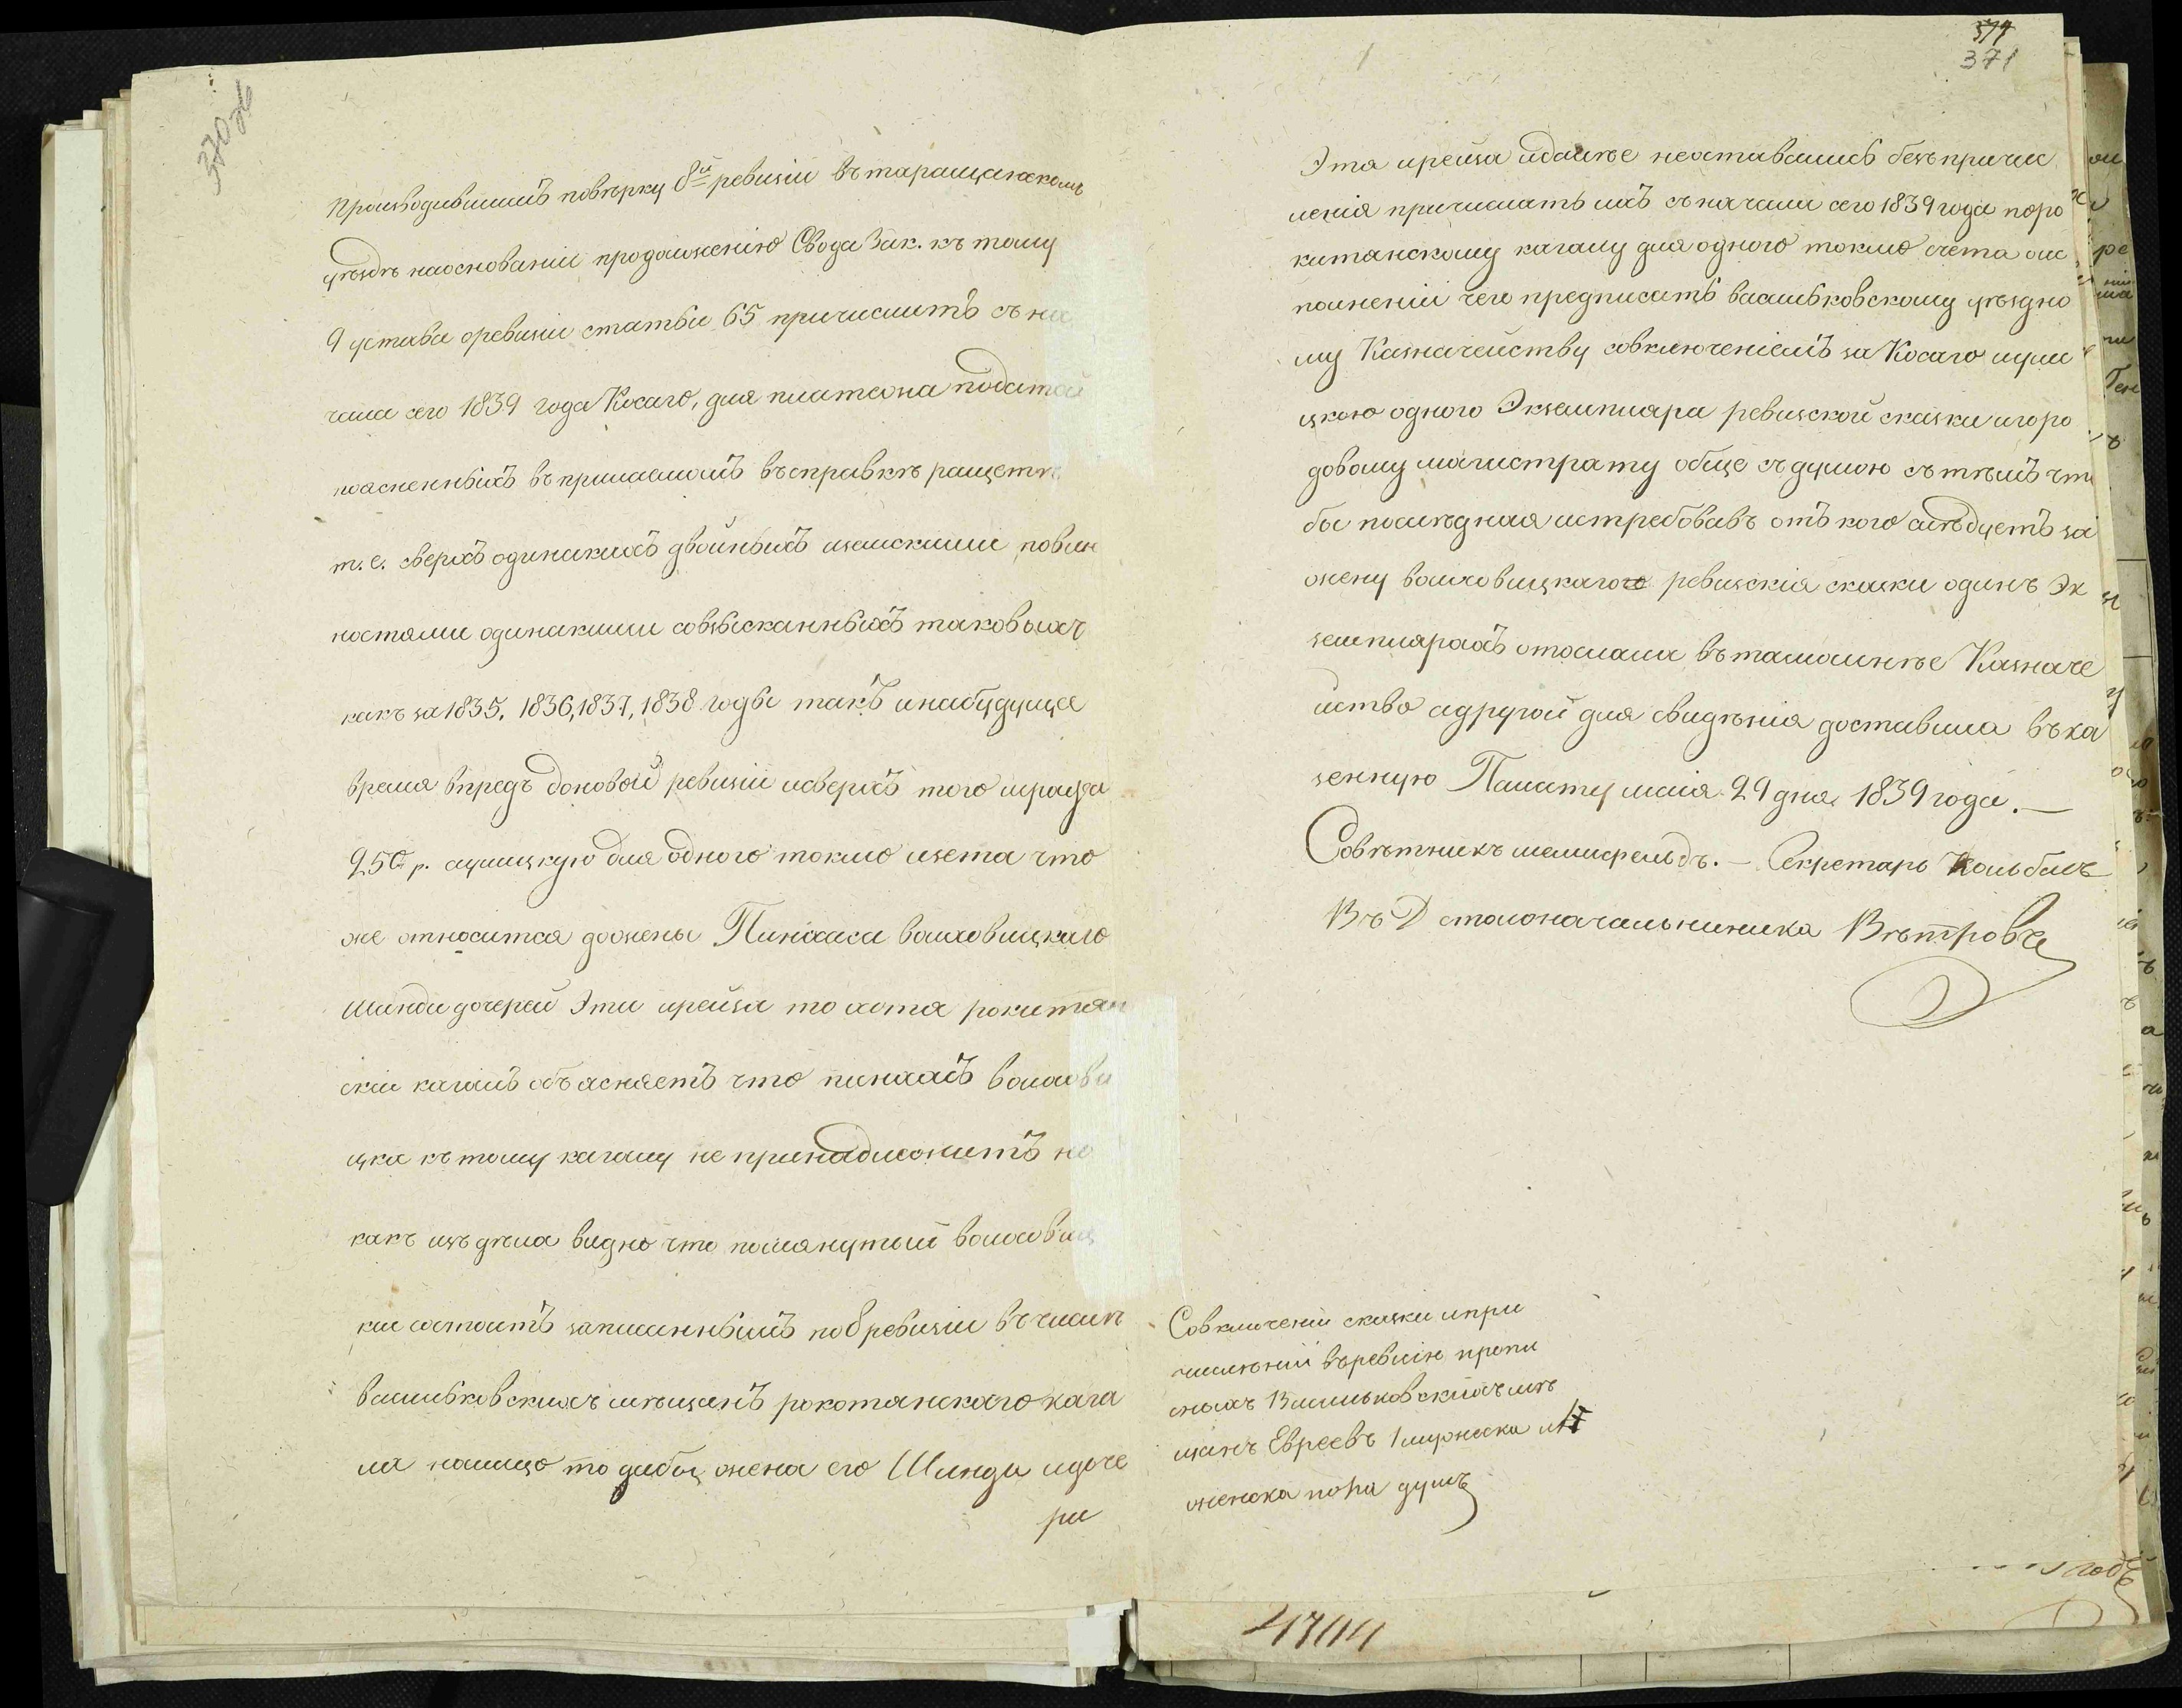 370 об
производившимъ повѣрку 8й ревизіи въ таращанскомъ
уѣздѣ на основаніи продолженію Свода Зак. къ тому
9 устава о ревизіи статьи 65 причислить съ на
чала сего 1839 года Косаго, для платежа податей
поясненныхъ въ прилагаемомъ въ справкѣ ращетѣ
т. е. сверхъ одинакихъ двойныхъ и земскими повин
ностями одинакими со взысканныхъ таковыхъ
какъ за 1835, 1836, 1837, 1838 годы такъ и на будущее
время впредъ до новой ревизіи и сверхъ того штрафа
250 р. а для одного токмо щета что
же относится до жены Пинхаса волховицкаго
Шинди дочерей Эти и рейзи то хотя рокитян
скій кагалъ объясняетъ что пинхасъ волхови
цки къ тому кагалу не принадлежитъ но
какъ изъ дѣла видно что помянутый волховиц
ки состоитъ запісаннымъ по 8 ревизіи въ числѣ
васильковскихъ мѣщанъ рокотянского кага
ла на лицо то дабы жена его Шинди и доче
ри
371
371
Эта и рейза и далѣе не оставались безъ причис
ленія причислить ихъ съ начала сего 1839 года по ро
китянскому кагалу для одного токмо счета о ис
полненіи чего предписать васильковскому уѣздно
му Казначейству со включеніемъ за Косаго
одного Экземпляра ревизской сказки и горо
довому магистрату обще съ думою съ тѣмъ что
бы послѣдняя истребовавъ отъ кого слѣдуетъ за
жену волховицкаго ревизскія сказки одинъ Эк
земпляръ отослала въ тамошнее Казначе
йство а другой для свидѣнія доставила въ ка
зенную Палату маія 29 дня 1839 года. —
Совѣтникъ — Секретарь
В Д столоначальника Вѣтровъ
О включеніи сказки и при
численіи въ ревизію пропи
сныхъ Васильковскихъ мѣ
щанъ Евреевъ 1 мужеска и
женска пола душъ
4744